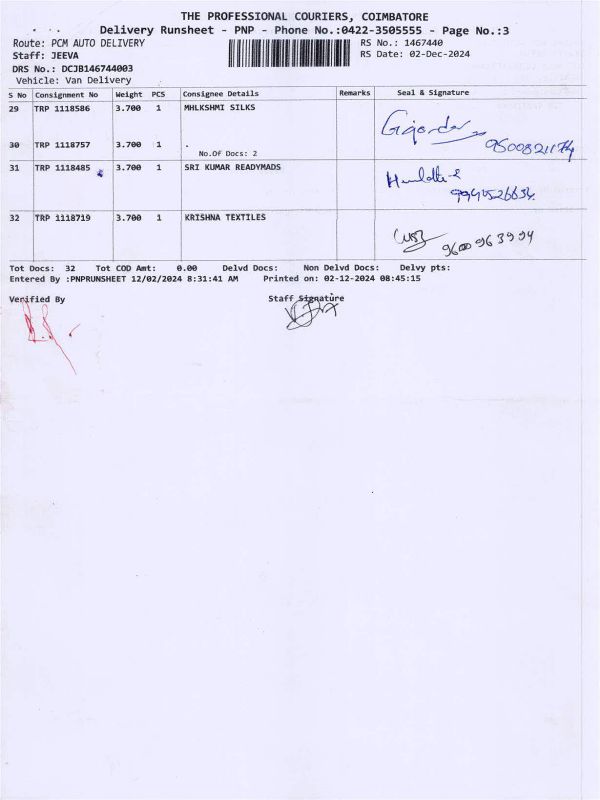 THE PROFESSIONAL COURIERS, COIMBATORE
Delivery Runsheet - PNP - Phone No.:0422-3505555 - Page No.:3
Route: PCM AUTO DELIVERY RS No.: 1467440
Staff: JEEVA RS Date: 02-Dec-2024
DRS No.: DCJB146744003
Vehicle: Van Delivery
S No Consignment No Weight PCS Consignee Details Remarks Seal & Signature
29 TRP 1118586 3.700 1 MHLKSHMI SILKS
30 TRP 1118757 3.700 1 .
No.Of Docs: 2
31 TRP 1118485 3.700 1 SRI KUMAR READYMADS
32 TRP 1118719 3.700 1 KRISHNA TEXTILES
9600963994
Tot Docs: 32 Tot COD Amt: 0.00 Delvd Docs: Non Delvd Docs: Delvy pts:
Entered By :PNPRUNSHEET 12/02/2024 8:31:41 AM Printed on: 02-12-2024 08:45:15
Verified By Staff Signature